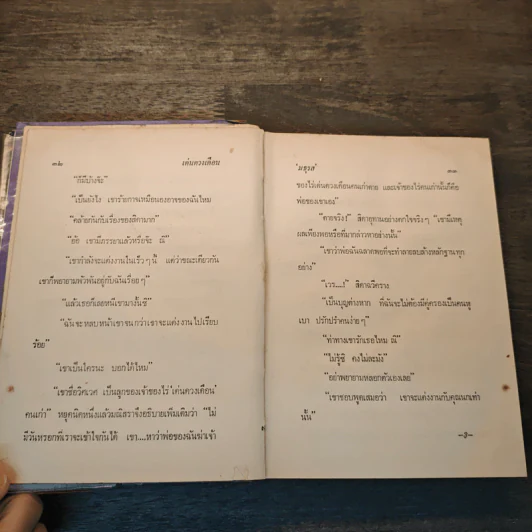 ๓๒ เด่นดวงเดือน
"ก็มีบ้างจ้ะ"
"เป็นยังไง เขาร้ายกาจเหมือนองอาจของฉันไหม
"คล้ายกันกับเรื่องของสิกามาก"
"อ้อ เขามีภรรยาแล้วหรือจ๊ะ ณี"
"เขากำลังจะแต่งงานในเร็วๆ นี้ แต่ว่าขณะเดียวกัน
เขาก็พยายามมาพัวพันอยู่กับฉันเรื่อยๆ"
"แล้วเธอก็เลยหนีเขามางั้นซี"
"ฉันจะหลบหน้าเขาจนกว่าเขาจะแต่งงานไปเรียบ
ร้อย"
"เขาเป็นใครนะ บอกได้ไหม"
"เขาชื่อวิศเวศ เป็นลูกของเจ้าของไร่ 'เด่นดวงเดือน'
คนเก่า" หยุดนิดหนึ่งแล้วมณีสราจึงอธิบายเพิ่มเติมว่า "ไม่
มีวันหรอกที่เราจะเข้าใจกันได้ เขา....หาว่าพ่อของฉันฆ่าเจ้า
'มธุรส' ๓๓
ของไร่เด่นดวงเดือนคนเก่าตาย และเจ้าของไร่คนเก่านั้นก็คือ
พ่อของเขาเอง"
"ตายจริง!" สิกาอุทานอย่างตกใจจริงๆ "เขามีเหตุ
ผลเพียงพอหรือที่มากล่าวหาอย่างนั้น"
"เขาว่าพ่อฉันฉลาดพอที่จะทำลายลบล้างหลักฐานทุก
อย่าง"
"เวร....!" สิกาฉวีคราง
"เป็นบุญต่างหาก ที่ฉันจะไม่ต้องมีคู่ครองเป็นคนหู
เบา ปรักปรำคนง่ายๆ"
"ท่าทางเขารักเธอไหม ณี"
"ไม่รู้ซิ คงไม่ละมัง"
"อย่าพยายามหลอกตัวเองเลย"
"เขาชอบพูดเสมอว่า เขาจะแต่งงานกับคุณเกเท่า
นั้น"
—3—